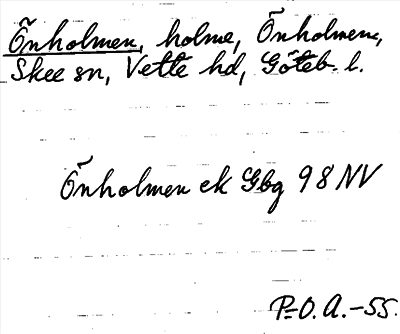 Önholmen, holme, Önholmene,
Skee sn, Vette hd, Göteb. l.
Önholmen ek Gbg 98 NV
P-O. A. -55.